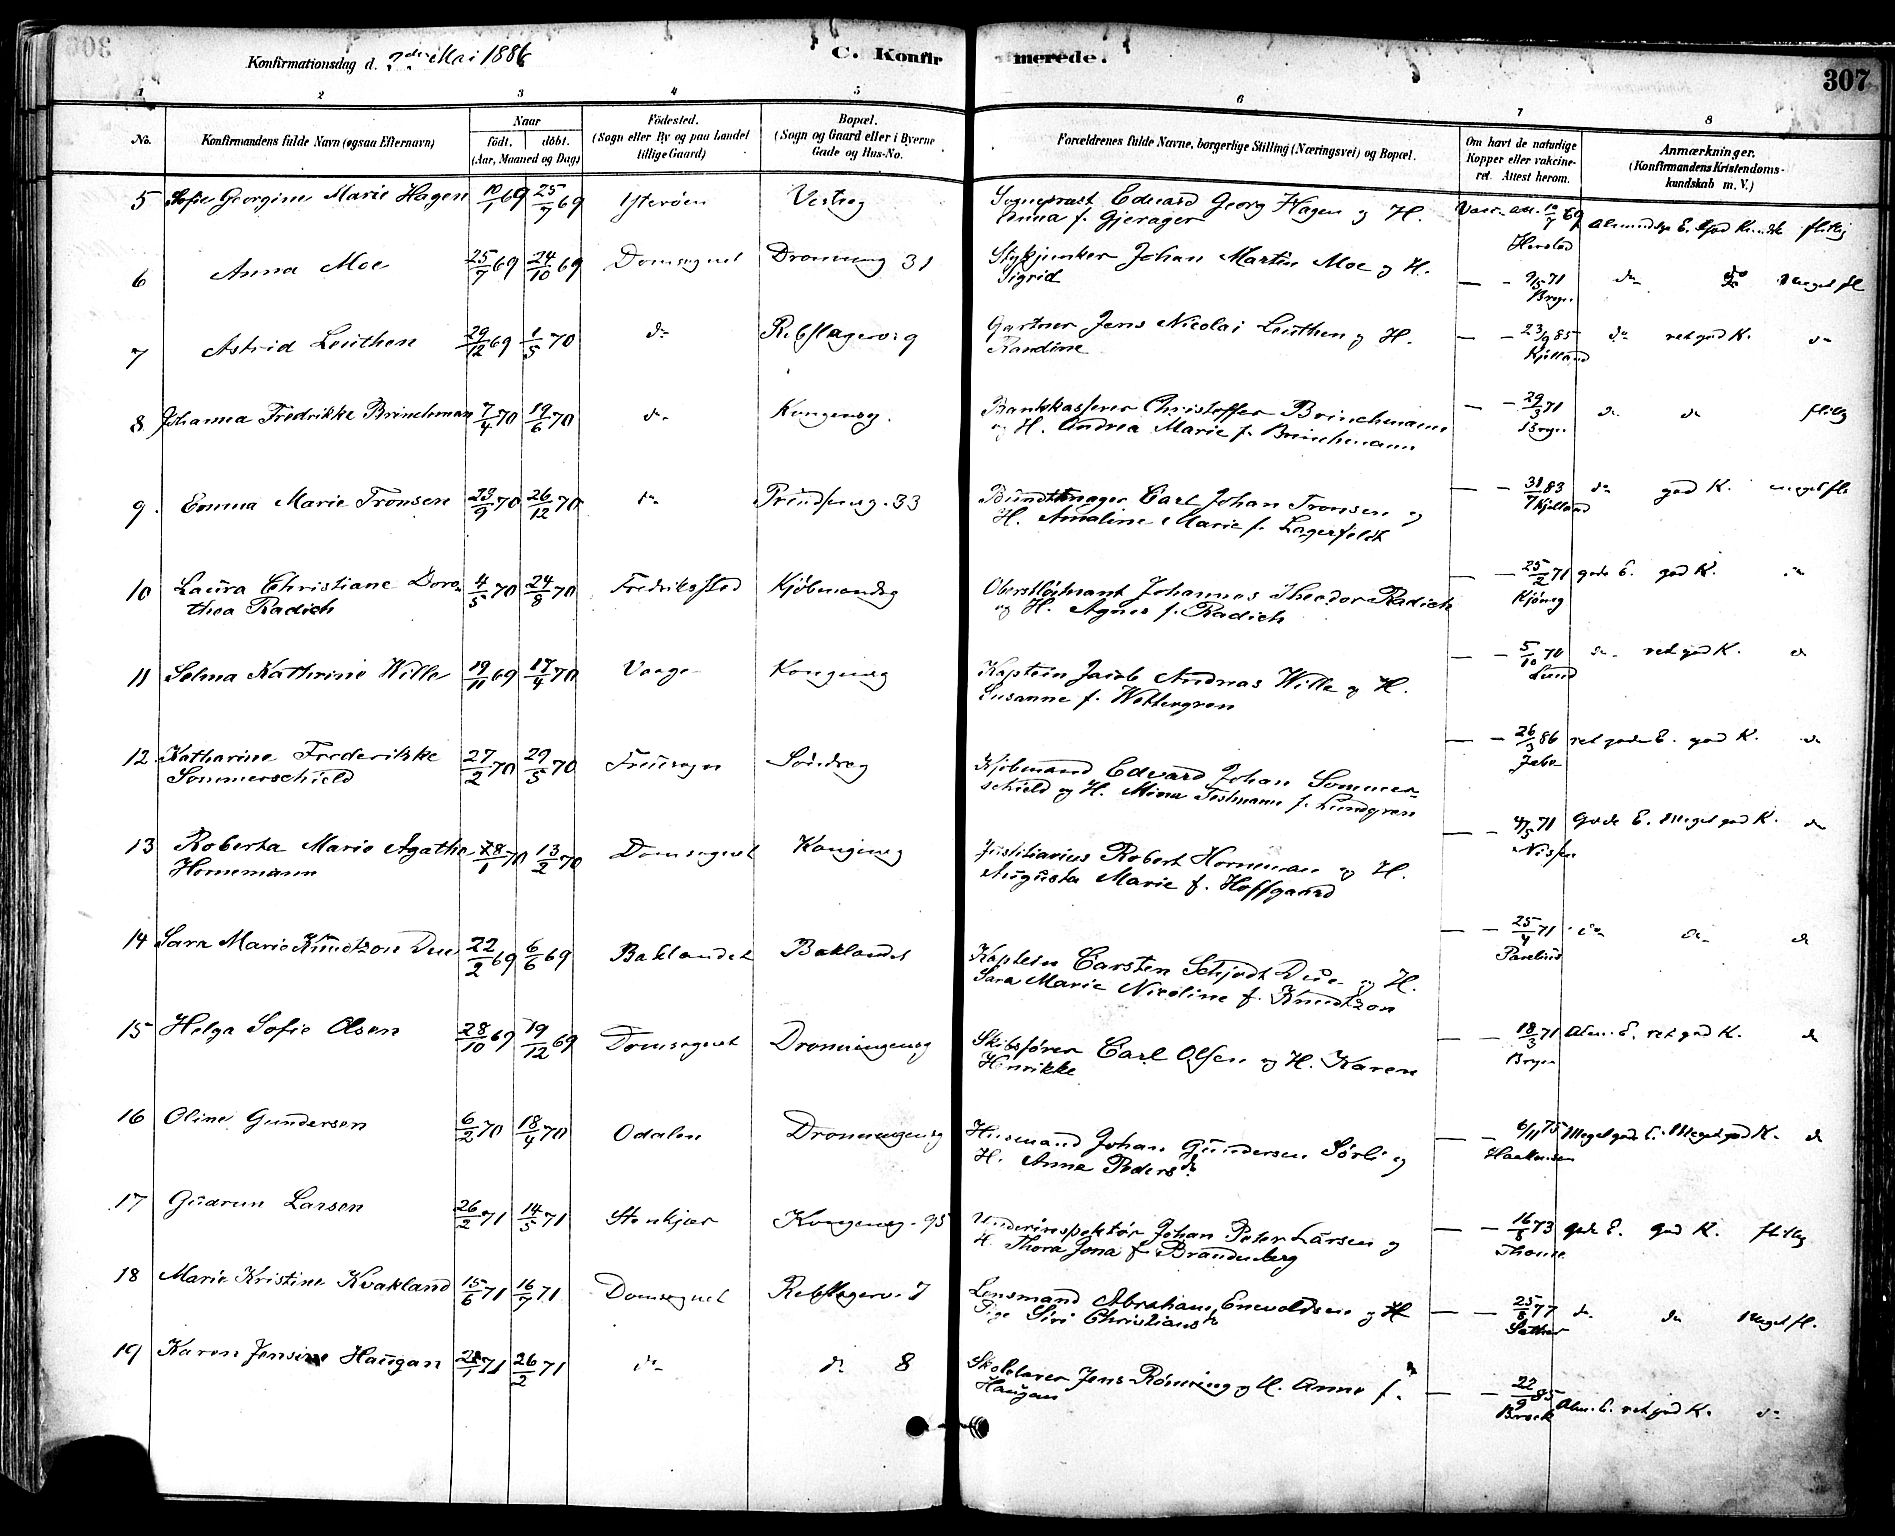 Konfirmationsdag d. 2den Mai 1886
C. Konfirmerede.
307
1 2 3 4 5 6 7 8
No.
Konfirmandens fulde Navn (ogsaa Efternavn)
Naar
födt. döbt.
(Aar, Maaned og Dag)
Födested.
(Sogn eller By og paa Landet
tillige Gaard)
Bopæl.
(Sogn og Gaard eller i Byerne
Gade og Hus-No.
Forældrenes fulde Navne, borgerlige Stilling (Næringsvei) og Bopæl.
Om havt de naturlige
Kopper eller vakcine-
ret. Attest herom.
Anmærkninger.
(Konfirmandens Kristendoms-
kundskab m. V.)
5 Sofie Georgine Marie Hagen 10/1 69 25/7 69 Ytterøen Vestreg Sogneprest Eduard Georg Hagen og H. Vacc. att. 10/7 69 Almindelige E. God Kundsk flittig
Anna f. Gjerager Herstad
6 Anna Moe 25/7 69 24/10 69 Domsognet Dronning 31 Stykjunker Johan Martin Moe og H. — - 9/5 71 do do Meget fl
Sigrid Bryn
7 Astrid Leuthen 29/12 69 1/5 70 do Rebslagerv. 9 Gartner Jens Nicolai Leuthen og H. — - 23/9 85 do ret god K. do
Randine Kjelland
8 Johanna Fredrikke Brinchman 7/4 70 19/6 70 do Kongensg. Bankkasserer Christoffer Brinchmann — - 29/3 71 do do flittig
og H. Andrea Marie f. Brinchmann Bryn
9. Emma Marie Tronsen 23/9 70 26/12 70 do Prindsensg. 33 Bundtmager Carl Johan Tronsen og — - 31/7 83 do god K. meget fl
H. Amaline Marie f. Lagerfeldt Kjelland
10 Laura Christiane Doro- 4/5 70 24/8 70 Fredriksstad Kjöbmandsg Oberstløitnant Johannes Theodor Radich — - 25/2 71 gode E. god K. do
thea Radich og H. Agnes f. Radich
11 Selma Kathrine Wille 19/11 69 17/4 70 Vaage Kongensg Kaptein Jacob Andreas Wille og H. — - 5/10 70 do ret god K. do
Susanne f. Wettergren Lund
12 Katharine Frederikke 27/2 70 29/5 70 Fruesogn Söndreg Kjöbmand Edvard Johan Sommer- — - 26/3 86 ret gode E. god K. do
Sommerschield schield og H. Mina Testmann f. Lundgren
13 Roberta Marie Agathe 28/1 70 13/2 70 Domsognet Kongensg Justitiarius Robert Horneman og H. — - 4/5 71 Gode E. Meget god K. do
Hornemann Augusta Marie f. Hoffgaard Nissen
14 Sara Marie Knudtzon Due 22/2 69 6/6 69 Baklandet Baklandet Kaptein Carsten Schjødt Due og H. — - 25/4 71 do do do
Sara Marie Nicoline f. Knudtzon Parelius
15 Helga Sofie Olsen 28/10 69 19/12 69 Domsognet Dronningensg Skibsfører Carl Olsen og H. Karen — - 18/3 71 Alm. E. ret god K. do
Henrikke Bryn
16 Oline Gundersen 6/2 70 18/4 70 Odalen Dronningensg Husmand Johan Gundersen Sørli og — 6/11 75 Meget gode E. Meget god K. do
H. Anna Pedersdr Haakensen
17 Gudrun Larsen 26/2 71 14/5 71 Stenkjær Kongensg. 95 Underinspektör Johan Peter Larsen og — - 16/6 73 gode E. God K. flittig
H. Thora Jona f. Brandenberg Thonne
18 Marie Kristine Kvakland 15/6 71 16/7 71 Domsognet Rebslagerv. 7 Lensmand Abraham Enevoldsen og H — - 25/8 77 do do Meget fl.
Pige Siri Christiansdr
19 Karen Jensine Haugan 22/1 71 26/2 71 do do 8 Skolelærer Jens Rönning og H. Anne f. — - 22/9 85 Alm. E. ret god K. do
Haugan Brock